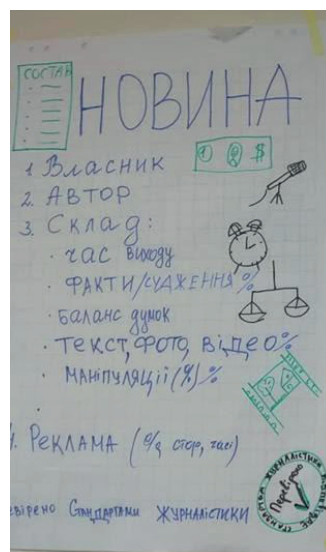 СОСТАВ
НОВИНА
1 $
1 Власник
2. АВТОР
3. Склад:
· час виходу
· ФАКТИ/СУДЖЕННЯ %
· баланс думок
· ТЕКСТ, ФОТО, ВІДЕО %
· МАНІПУЛЯЦІЇ (%) %
·
. РЕКЛАМА (% стор, часі)
евірено Стандартами ЖУРНАЛІСТИКИ
Перевірено
СТАНДАРТИ ЖУРНАЛІСТИКИ